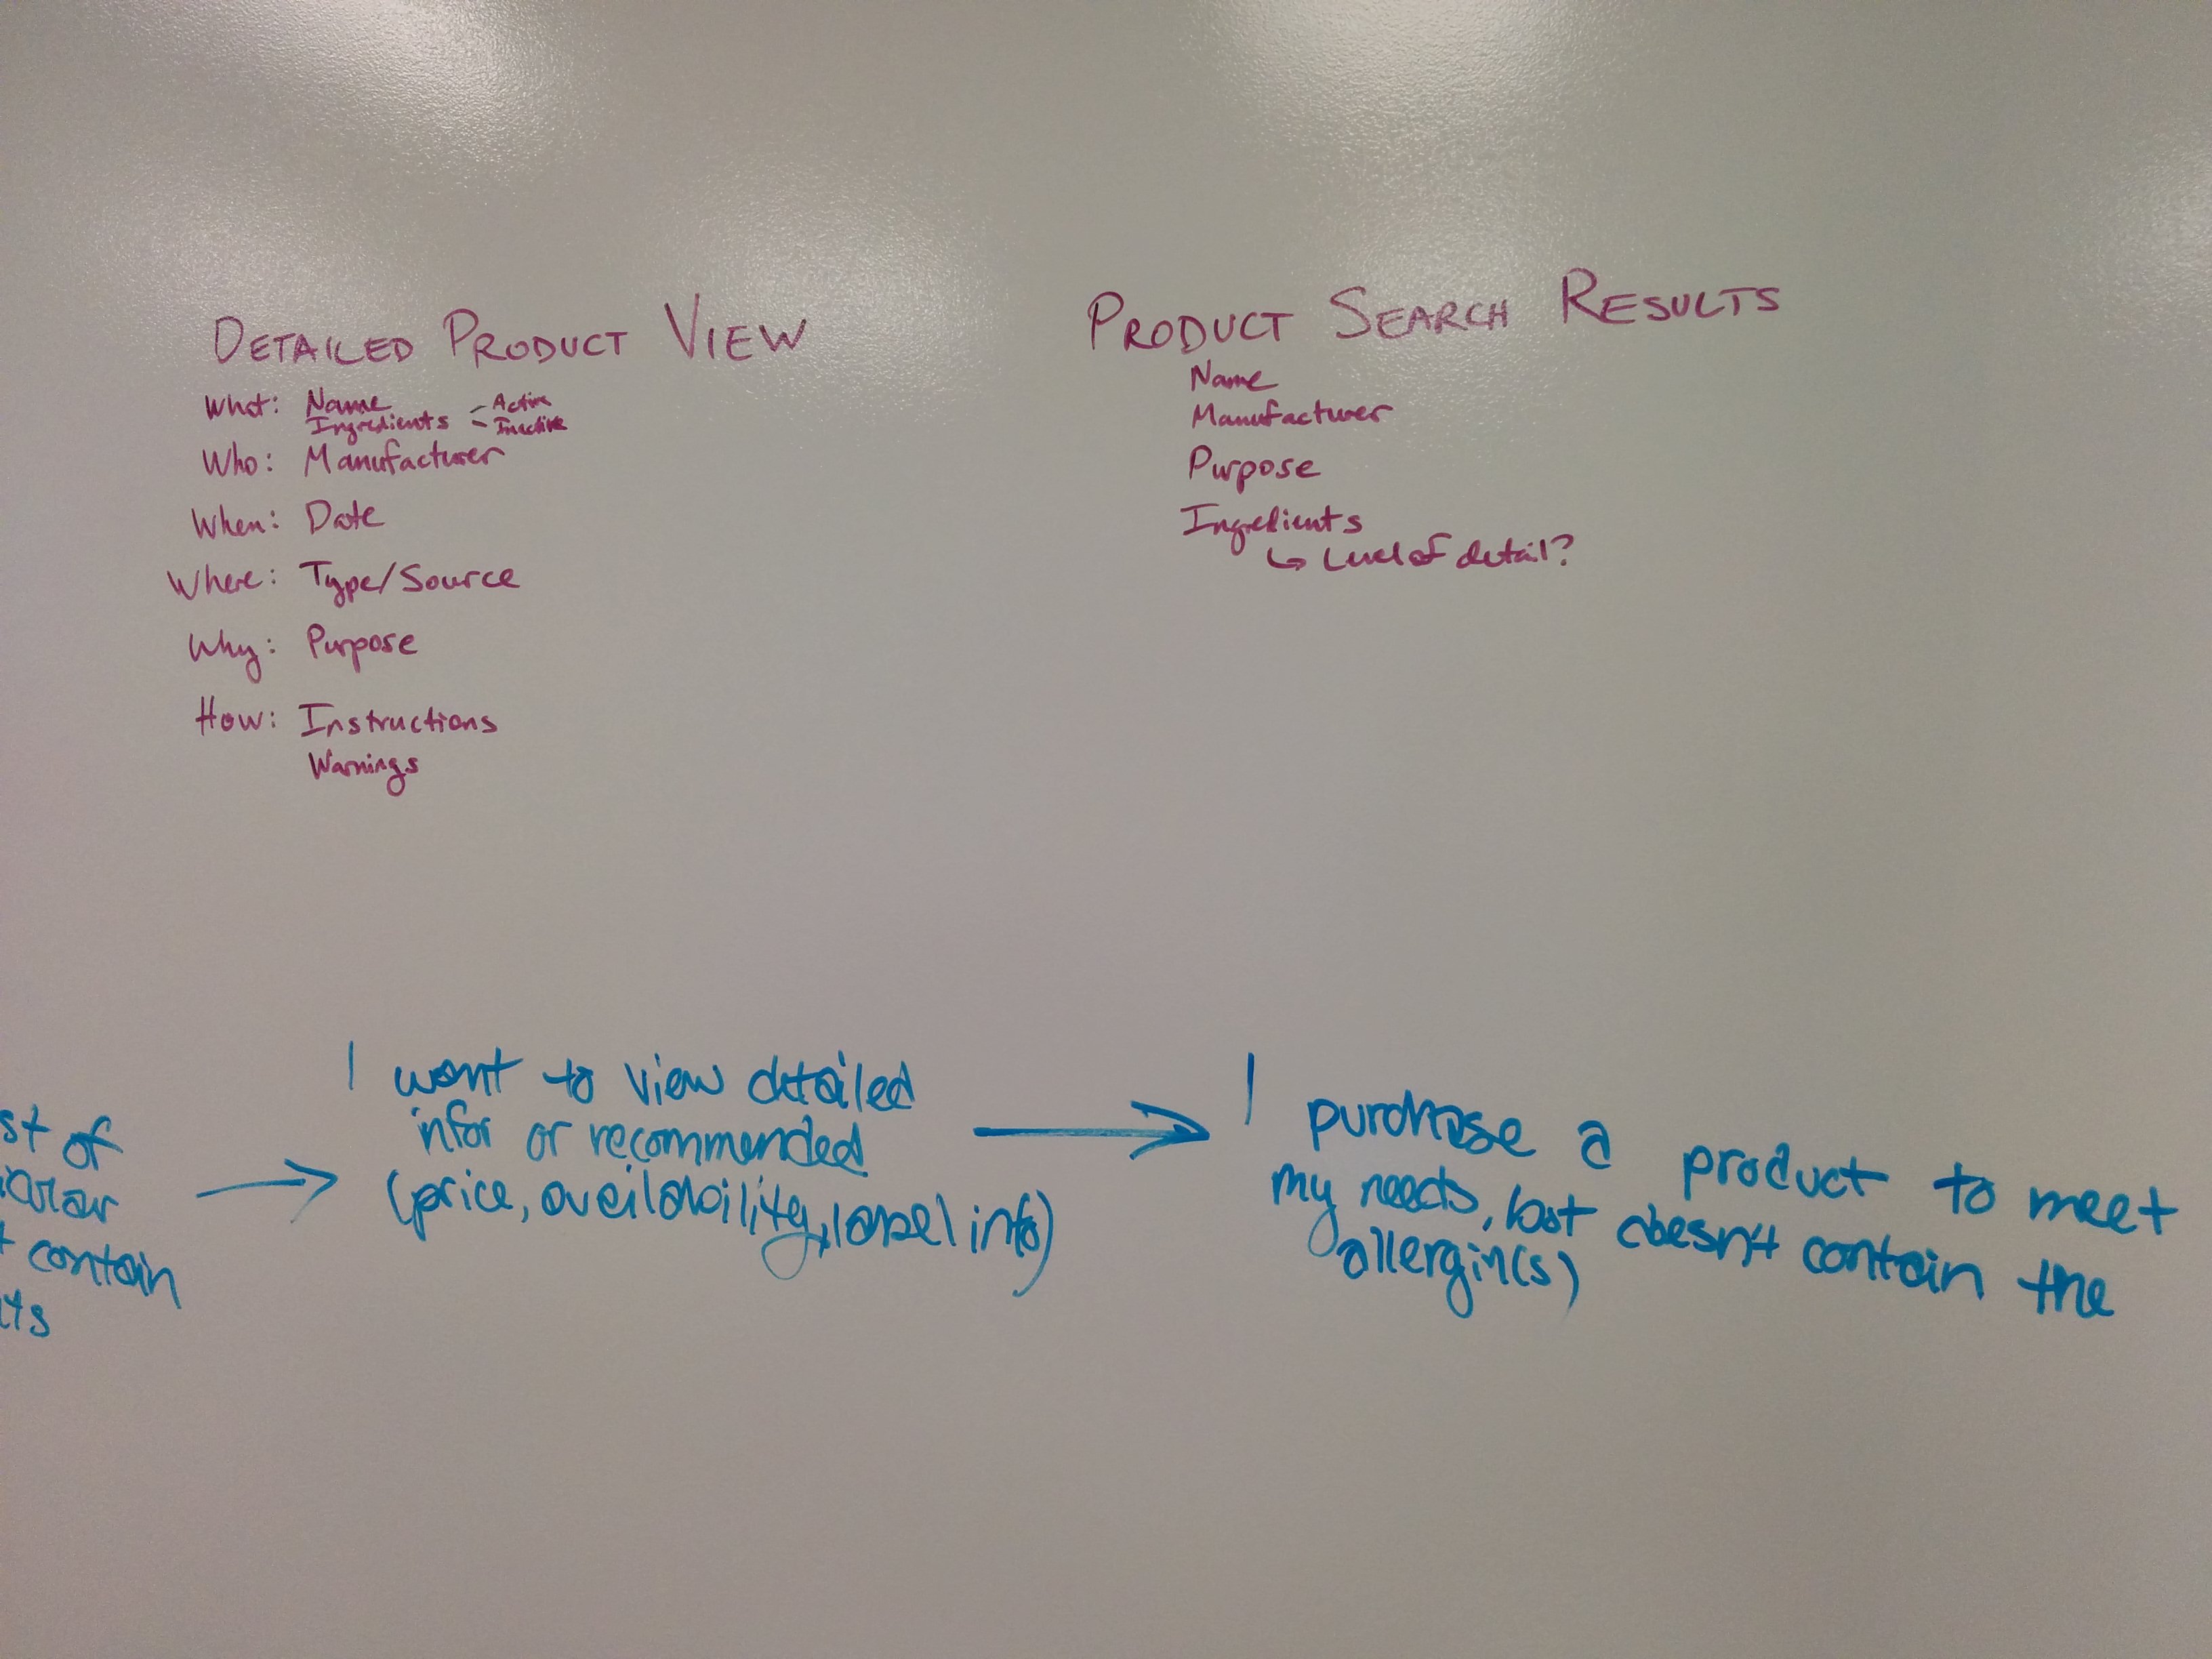 DETAILED PRODUCT VIEW
What: Name
Ingredients - Active
- Inactive
Who: Manufacturer
When: Date
Where: Type/Source
Why: Purpose
How: Instructions
Warnings
PRODUCT SEARCH RESULTS
Name
Manufacturer
Purpose
Ingredients
↳ Level of detail?
st of
contain
→
I want to view detailed
infor or recommended
(price, availability, label info)
→
I purchase a product to meet
my needs, but doesn't contain the
allergin(s)